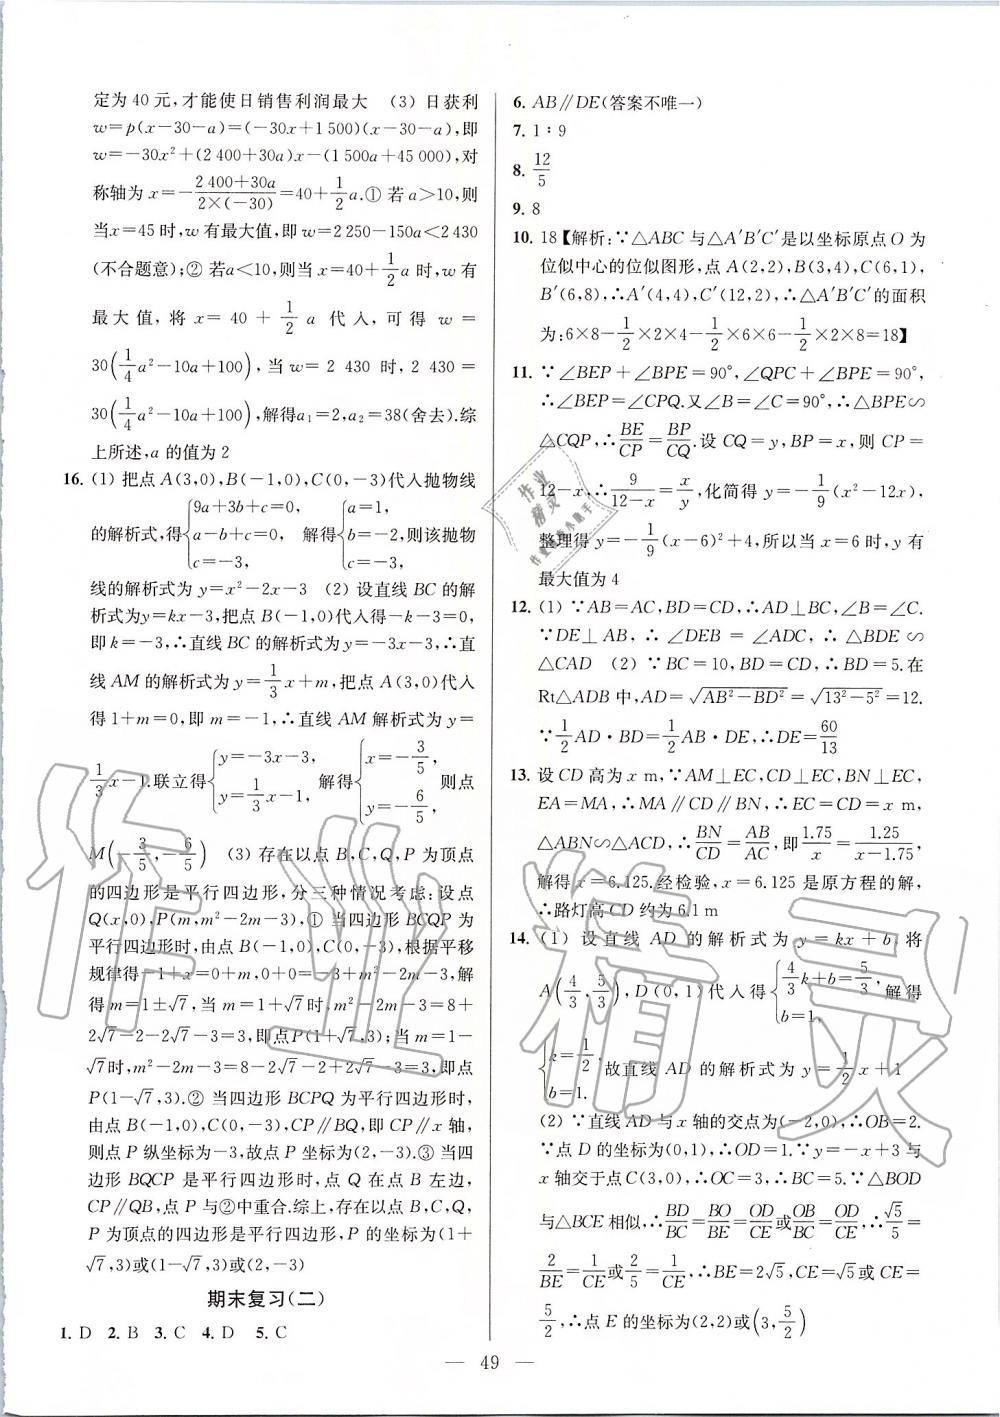 定为40元,才能使日销售利润最大 (3) 日获利
w=p(x-30-a)=(-30x+1 500)(x-30-a),即
w=-30x²+(2 400+30a)x-(1 500a+45 000),对
称轴为 x=-\frac{2 400+30a}{2×(-30)}=40+\frac{1}{2}a.① 若 a>10,则
当x=45时,w有最大值,即w=2 250-150a<2 430
(不合题意);② 若a<10,则当x=40+\frac{1}{2}a 时,w有
最大值,将 x=40+\frac{1}{2}a 代入,可得 w=
30(\frac{1}{4}a²-10a+100),当 w=2 430 时,2 430=
30(\frac{1}{4}a²-10a+100),解得a₁=2,a₂=38(舍去).综
上所述,a 的值为 2
16. (1) 把点A(3,0),B(-1,0),C(0,-3)代入抛物线
的解析式,得{9a+3b+c=0, a-b+c=0, c=-3, 解得{a=1, b=-2, c=-3, 则该抛物
线的解析式为 y=x²-2x-3 (2) 设直线 BC 的解
析式为y=kx-3,把点B(-1,0)代入得-k-3=0,
即k=-3,∴直线BC的解析式为y=-3x-3,∴直
线 AM 的解析式为 y=\frac{1}{3}x+m,把点 A(3,0)代入
得1+m=0,即 m=-1,∴直线 AM 解析式为 y=
\frac{1}{3}x-1.联立得{y=-3x-3, y=\frac{1}{3}x-1, 解得{x=-\frac{3}{5}, y=-\frac{6}{5}, 则点
M(-\frac{3}{5},-\frac{6}{5}) (3) 存在以点 B,C,Q,P 为顶点
的四边形是平行四边形,分三种情况考虑:设点
Q(x,0),P(m,m²-2m-3),① 当四边形 BCQP 为
平行四边形时,由点 B(-1,0),C(0,-3),根据平移
规律得-1+x=0+m,0+0=-3+m²-2m-3,解
得 m=1±√7,当 m=1+√7时,m²-2m-3=8+
2√7-2-2√7-3=3,即点P(1+√7,3);当 m=1-
√7时,m²-2m-3=8-2√7-2+2√7-3=3,即点
P(1-√7,3).② 当四边形BCPQ为平行四边形时,
由点 B(-1,0),C(0,-3),CP∥BQ,即 CP∥x 轴,
则点 P 纵坐标为-3,故点 P 坐标为(2,-3).③ 当四
边形 BQCP 是平行四边形时,点 Q 在点 B 左边,
CP∥QB,点 P 与②中重合.综上,存在以点 B,C,Q,
P 为顶点的四边形是平行四边形,P 的坐标为(1+
√7,3)或(1-√7,3)或(2,-3)
期末复习(二)
1. D 2. B 3. C 4. D 5. C
6. AB∥DE(答案不唯一)
7. 1∶9
8. \frac{12}{5}
9. 8
10. 18【解析:∵△ABC与△A′B′C′是以坐标原点 O 为
位似中心的位似图形,点 A(2,2),B(3,4),C(6,1),
B′(6,8),∴A′(4,4),C′(12,2),∴△A′B′C′的面积
为:6×8-\frac{1}{2}×2×4-\frac{1}{2}×6×6-\frac{1}{2}×2×8=18】
11. ∵∠BEP+∠BPE=90°,∠QPC+∠BPE=90°,
∴∠BEP=∠CPQ.又∠B=∠C=90°,∴△BPE∽
△CQP,∴\frac{BE}{CP}=\frac{BP}{CQ}.设 CQ=y,BP=x,则 CP=
12-x,∴\frac{9}{12-x}=\frac{x}{y},化简得 y=-\frac{1}{9}(x²-12x),
整理得y=-\frac{1}{9}(x-6)²+4,所以当 x=6 时,y有
最大值为 4
12. (1) ∵AB=AC,BD=CD,∴AD⊥BC,∠B=∠C.
∵DE⊥AB,∴∠DEB=∠ADC,∴△BDE∽
△CAD (2) ∵BC=10,BD=CD,∴BD=5.在
Rt△ADB 中,AD=√(AB²-BD²)=√(13²-5²)=12.
∵\frac{1}{2}AD·BD=\frac{1}{2}AB·DE,∴DE=\frac{60}{13}
13. 设CD高为x m,∵AM⊥EC,CD⊥EC,BN⊥EC,
EA=MA,∴MA∥CD∥BN,∴EC=CD=x m,
△ABN∽△ACD,∴\frac{BN}{CD}=\frac{AB}{AC},即\frac{1.75}{x}=\frac{1.25}{x-1.75},
解得 x=6.125.经检验,x=6.125是原方程的解,
∴路灯高CD约为6.1 m
14. (1) 设直线 AD 的解析式为 y=kx+b,将
A(\frac{4}{3},\frac{5}{3}),D(0,1)代入得{\frac{4}{3}k+b=\frac{5}{3}, b=1, 解得
{k=\frac{1}{2}, b=1. 故直线 AD 的解析式为 y=\frac{1}{2}x+1
(2) ∵直线AD与x轴的交点为(-2,0),∴OB=2.
∵点 D 的坐标为(0,1),∴OD=1.∵y=-x+3 与
x轴交于点C(3,0),∴OC=3,∴BC=5.∵△BOD
与△BCE相似,∴\frac{BD}{BC}=\frac{BO}{BE}=\frac{OD}{CE}或\frac{OB}{BC}=\frac{OD}{CE},∴\frac{√5}{5}=
\frac{2}{BE}=\frac{1}{CE}或\frac{2}{5}=\frac{1}{CE},∴BE=2√5,CE=√5或CE=
\frac{5}{2},∴点 E 的坐标为(2,2)或(3,\frac{5}{2})
— 49 —
作业精灵